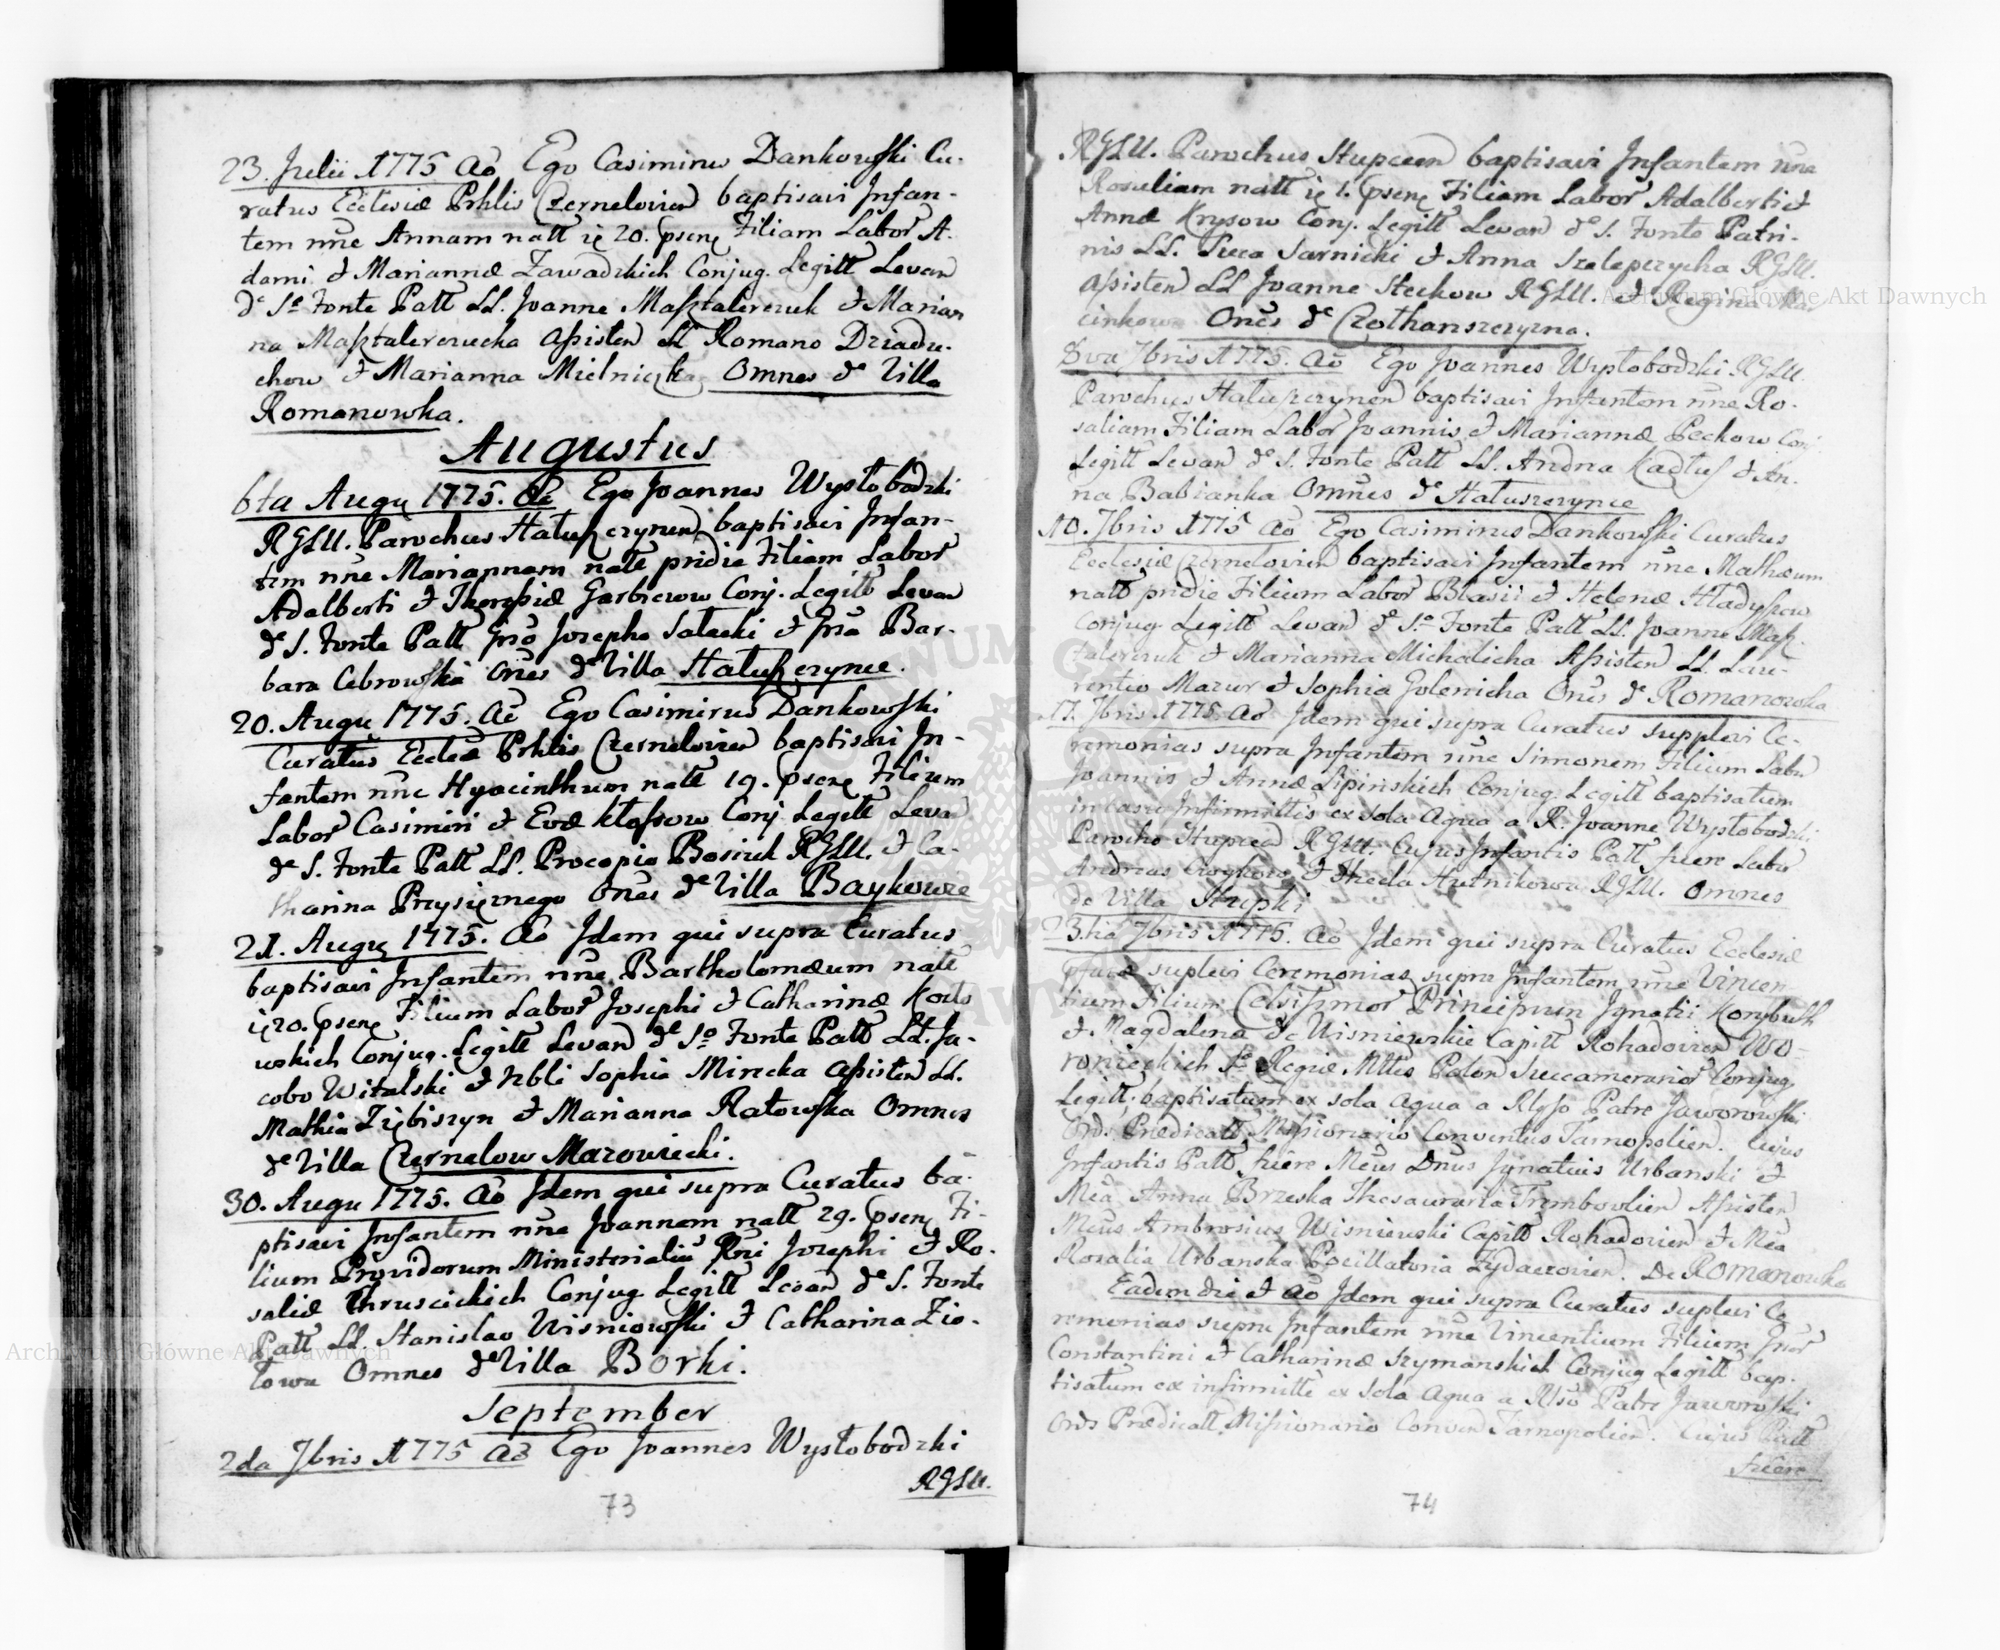 23. Julii 1775 Aõ Ego Casimirus Dankowski Cu-
ratus Ecclesiæ Prhlis Czerneloviens baptisavi Infan-
tem nñe Annam natt ię 20. psenę Filiam Labor A-
dami & Mariannæ Zawadzkich Conjug. Legitt Levan
de So Fonte Patt LL. Joanne Masztalerczuk & Marian
na Masztalerczucha Assisten LL Romano Dziadu-
chow & Marianna Mielniczka Omnes de Villa
Romanowka.
Augustus
6ta Augu 1775. Aõ Ego Joannes Wysłobodzki
RGLU. Parochus Hałuszczynen baptisavi Infan-
tem nñe Mariannam natt pridie Filiam Labor
Adalberti & Theresiæ Garbierow Conj. Legitt Levan
de S. Fonte Patt Gñso Josepho Satecki & Gñsa Bar-
bara Cebrowska Oñes de Villa Hałuszczynce.
20. Augu 1775. Aõ Ego Casimirus Dankowski
Curatus Eccleæ Prhlis Czerneloviens baptisavi In-
fantem nñe Hyacinthum natt 19. psenę Filium
Labor Casimiri & Evæ Kłossow Conj Legitt Levan
de S. Fonte Patt LL. Procopio Bosiuk RGLU. & Ca-
tharina Przysięznego Oñes de Villa Baykowce
21. Augu 1775. Aõ Idem qui supra Curatus
baptisavi Infantem nñe Bartholomæum natt
ię 20. psenę Filium Labor Josephi & Catharinæ Kozło
wskich Conjug. Legitt Levan de So Fonte Patt LL. Ja-
cobo Witalski & Nbli Sophia Mirecka Assisten LL.
Mathia Ziębiszyn & Marianna Ratowska Omnes
de Villa Czernelow Mazowiecki.
30. Augu 1775. Aõ Idem qui supra Curatus ba-
ptisavi Infantem nñe Joannem natt 29. psenę Fi-
lium Providorum Ministerialis Rni Josephi & Ro-
saliæ Chruscickich Conjug Legitt Levan de S. Fonte
Patt LL Stanislao Wisniowski & Catharina Zio-
łowa Omnes de Villa Borki.
September
2da 7bris 1775 Aõ Ego Joannes Wysłobodzki
RGLU.
73
RGLU. Parochus Stupcen baptisavi Infantem nñe
Rosaliam natt ię 1. psenę Filiam Labor Adalberti &
Annæ Krysow Conj. Legitt Levan de S. Fonte Patri-
nis LL. Luca Sarnicki & Anna Szeleszczycha RGLU.
Assisten LL Joanne Steckow RGLU. & Regina Mar
cinkowa Oñes de Czothanszczyzna.
8va 7bris 1775. Aõ Ego Joannes Wysłobodzki RGLU.
Parochus Hałuszczynen baptisavi Infantem nñe Ro-
saliam Filiam Labor Joannis & Mariannæ Peckow Conj
Legitt Levan de S. Fonte Patt LL. Andrea Kadłuf & An-
na Babianka Omñes de Hałuszczynce
10. 7bris 1775 Aõ Ego Casimirus Dankowski Curatus
Ecclesiæ Czerneloviens baptisavi Infantem nñe Mathæum
natt pridie Filium Labor Blasii & Helenæ Hładyszow
Conjug Legitt Levan de So Fonte Patt LL. Joanne Masz-
talerczuk & Marianna Michalicha Assisten LL Lau-
rentio Mazur & Sophia Golenicha Oñes de Romanowka
17. 7bris 1775 Aõ Idem qui supra Curatus supplevi Ce-
remonias supra Infantem nñe Simonem Filium Labor
Joannis & Annæ Lipinskich Conjug. Legitt baptisatum
in casu Infirmittis ex sola Aqua a R. Joanne Wysłobodzki
Parocho Stupcen RGLU. Cujus Infantis Patt fuere Labor
Andreas & Thecla Hutnikowa RGLU. Omnes
de Villa Stupki
23.tia 7bris 1775. Aõ Idem qui supra Curatus Ecclesiæ
supplevi Ceremonias supra Infantem nñe Vincen-
tium Filium Celsissimor Principum Ignatii Korybuth
& Magdalena de Wisniewskie Capitt Rohadovien Wo-
ronieckich Sæ Regiæ Mttis Polon Succamerarior Conjug
Legitt. baptisatum ex sola Aqua a Rlgso Patre Jaworowski
Ord. Prædicatt Missionario Conventus Tarnopolien. Cujus
Infantis Patt fuere Meus Dnus Ignatius Urbanski &
Mea Anna Brzeska Thesauraria Trembovlien Assisten
Meus Ambrosius Wisniewski Capitt Rohadovien & Mea
Rosalia Urbanska Pocillatoria Zydaczovien. De Romanowka
Eadem die & Aõ Idem qui supra Curatus suplevi Ce
remonias supra Infantem nñe Vincentium Filium Gñsor
Constantini & Catharinæ Szymanskich Conjug Legitt bap-
tisatum ex infirmitte ex sola Aqua a Rlso Patre Jaworoski
Ords Prædicatt Missionario Conven Tarnopolien. Cujus Patt
fuere
74
Archiwum Główne Akt Dawnych
Archiwum Główne Akt Dawnych